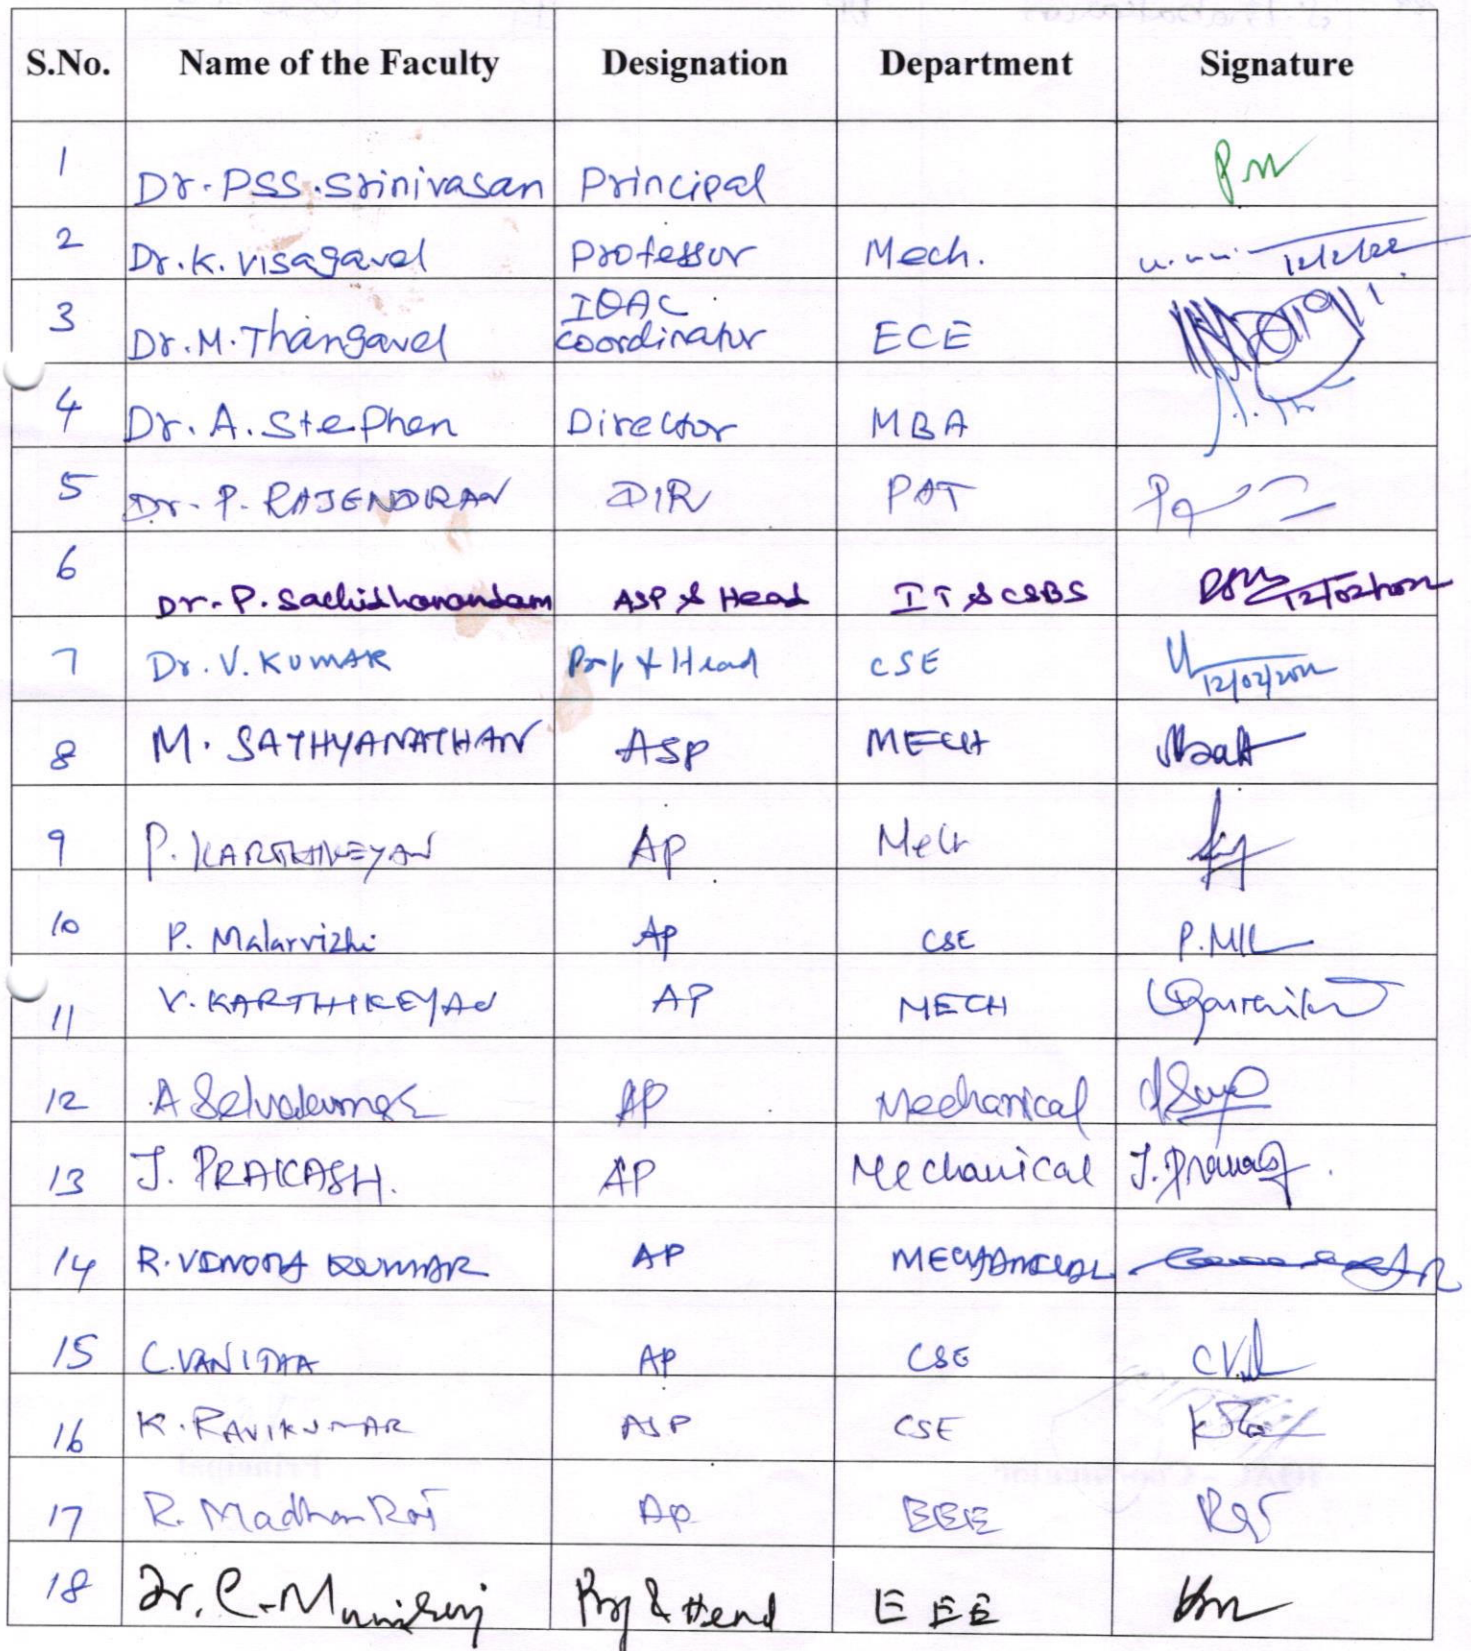 S.No. Name of the Faculty Designation Department Signature
1 Dr. PSS. Srinivasan Principal
2 Dr. K. Visagavel Professor Mech.
3 Dr. M. Thangavel IQAC coordinator ECE
4 Dr. A. Stephen Director MBA
5 Dr. P. RAJENDRAN DIR PAT
6 Dr. P. Sachidhanandam ASP & Head IT & CSBS 12/02/2022
7 Dr. V. KUMAR Prof & Head CSE 12/02/2022
8 M. SATHYANATHAN ASP MECH
9 P. KARTHIKEYAN AP Mech
10 P. Malarvizhi AP CSE
11 V. KARTHIKEYAN AP MECH
12 A Selvakumar AP Mechanical
13 J. PRAKASH. AP Mechanical
14 R. VINOTH KUMAR AP MECHANICAL
15 C. VANITHA AP CSE
16 K. RAVIKUMAR ASP CSE
17 R. Madhan Raj AP EEE
18 Dr. C. Muniraj Prof & Head EEE